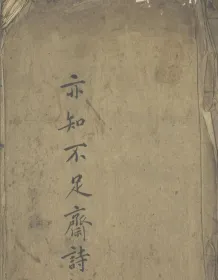 亦知不足齋詩